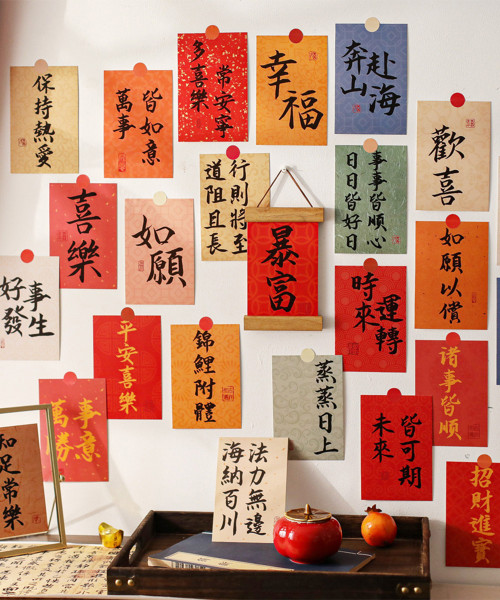 保持熱愛
萬事
皆如意
多喜樂
常安寧
幸福
奔山
赴海
歡喜
喜樂
如願
道阻且長
行則將至
暴富
事事皆順心
日日皆好日
如願以償
好事
發生
平安喜樂
錦鯉附體
時來
運轉
蒸蒸日上
諸事皆順
萬事
勝意
未來
皆可期
海納百川
法力無邊
招財進寶
知足常樂